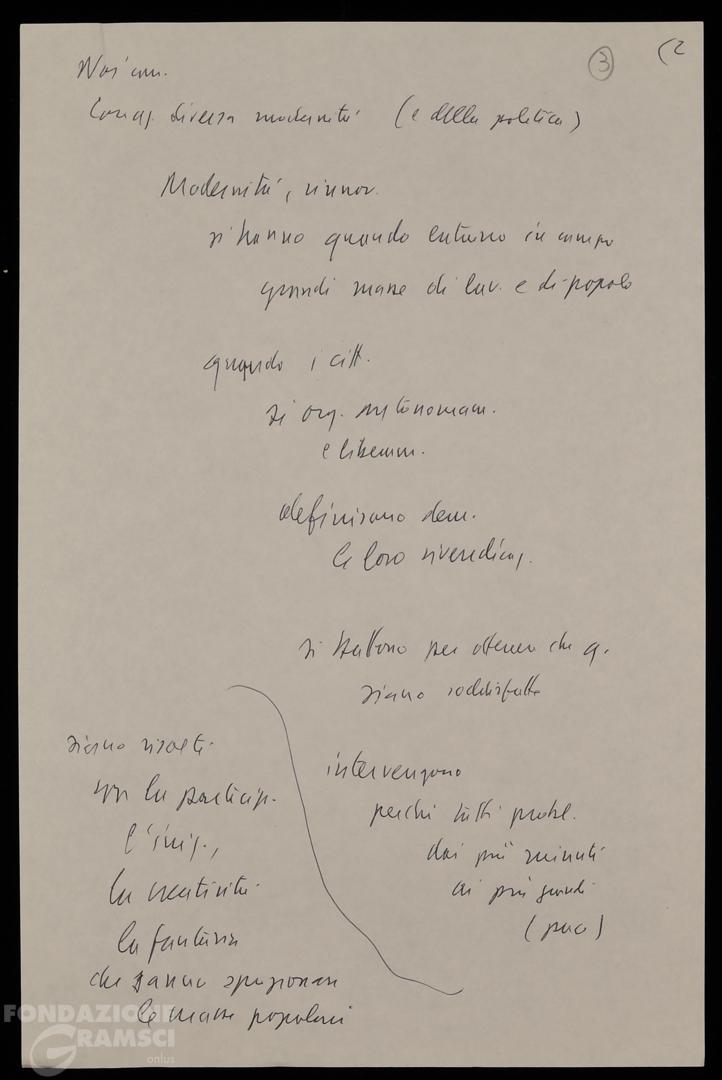 (2
3
Noi com.
Concez. diversa modernità (e della politica)
Modernità, rinnov.
si hanno quando entrano in campo
grandi masse di lav. e di popolo
quando i citt.
si org. autonomam.
e liberam.
definiscono dem.
le loro rivendicaz.
si battono per ottenere che q.
siano soddisfatte
intervengono
perché tutti probl.
dai più minuti
ai più grandi
(pace)
siano risolti
con la particip.
l'iniz.,
la creatività
la fantasia
che sanno sprigionare
le masse popolari
FONDAZIONE
GRAMSCI
onlus